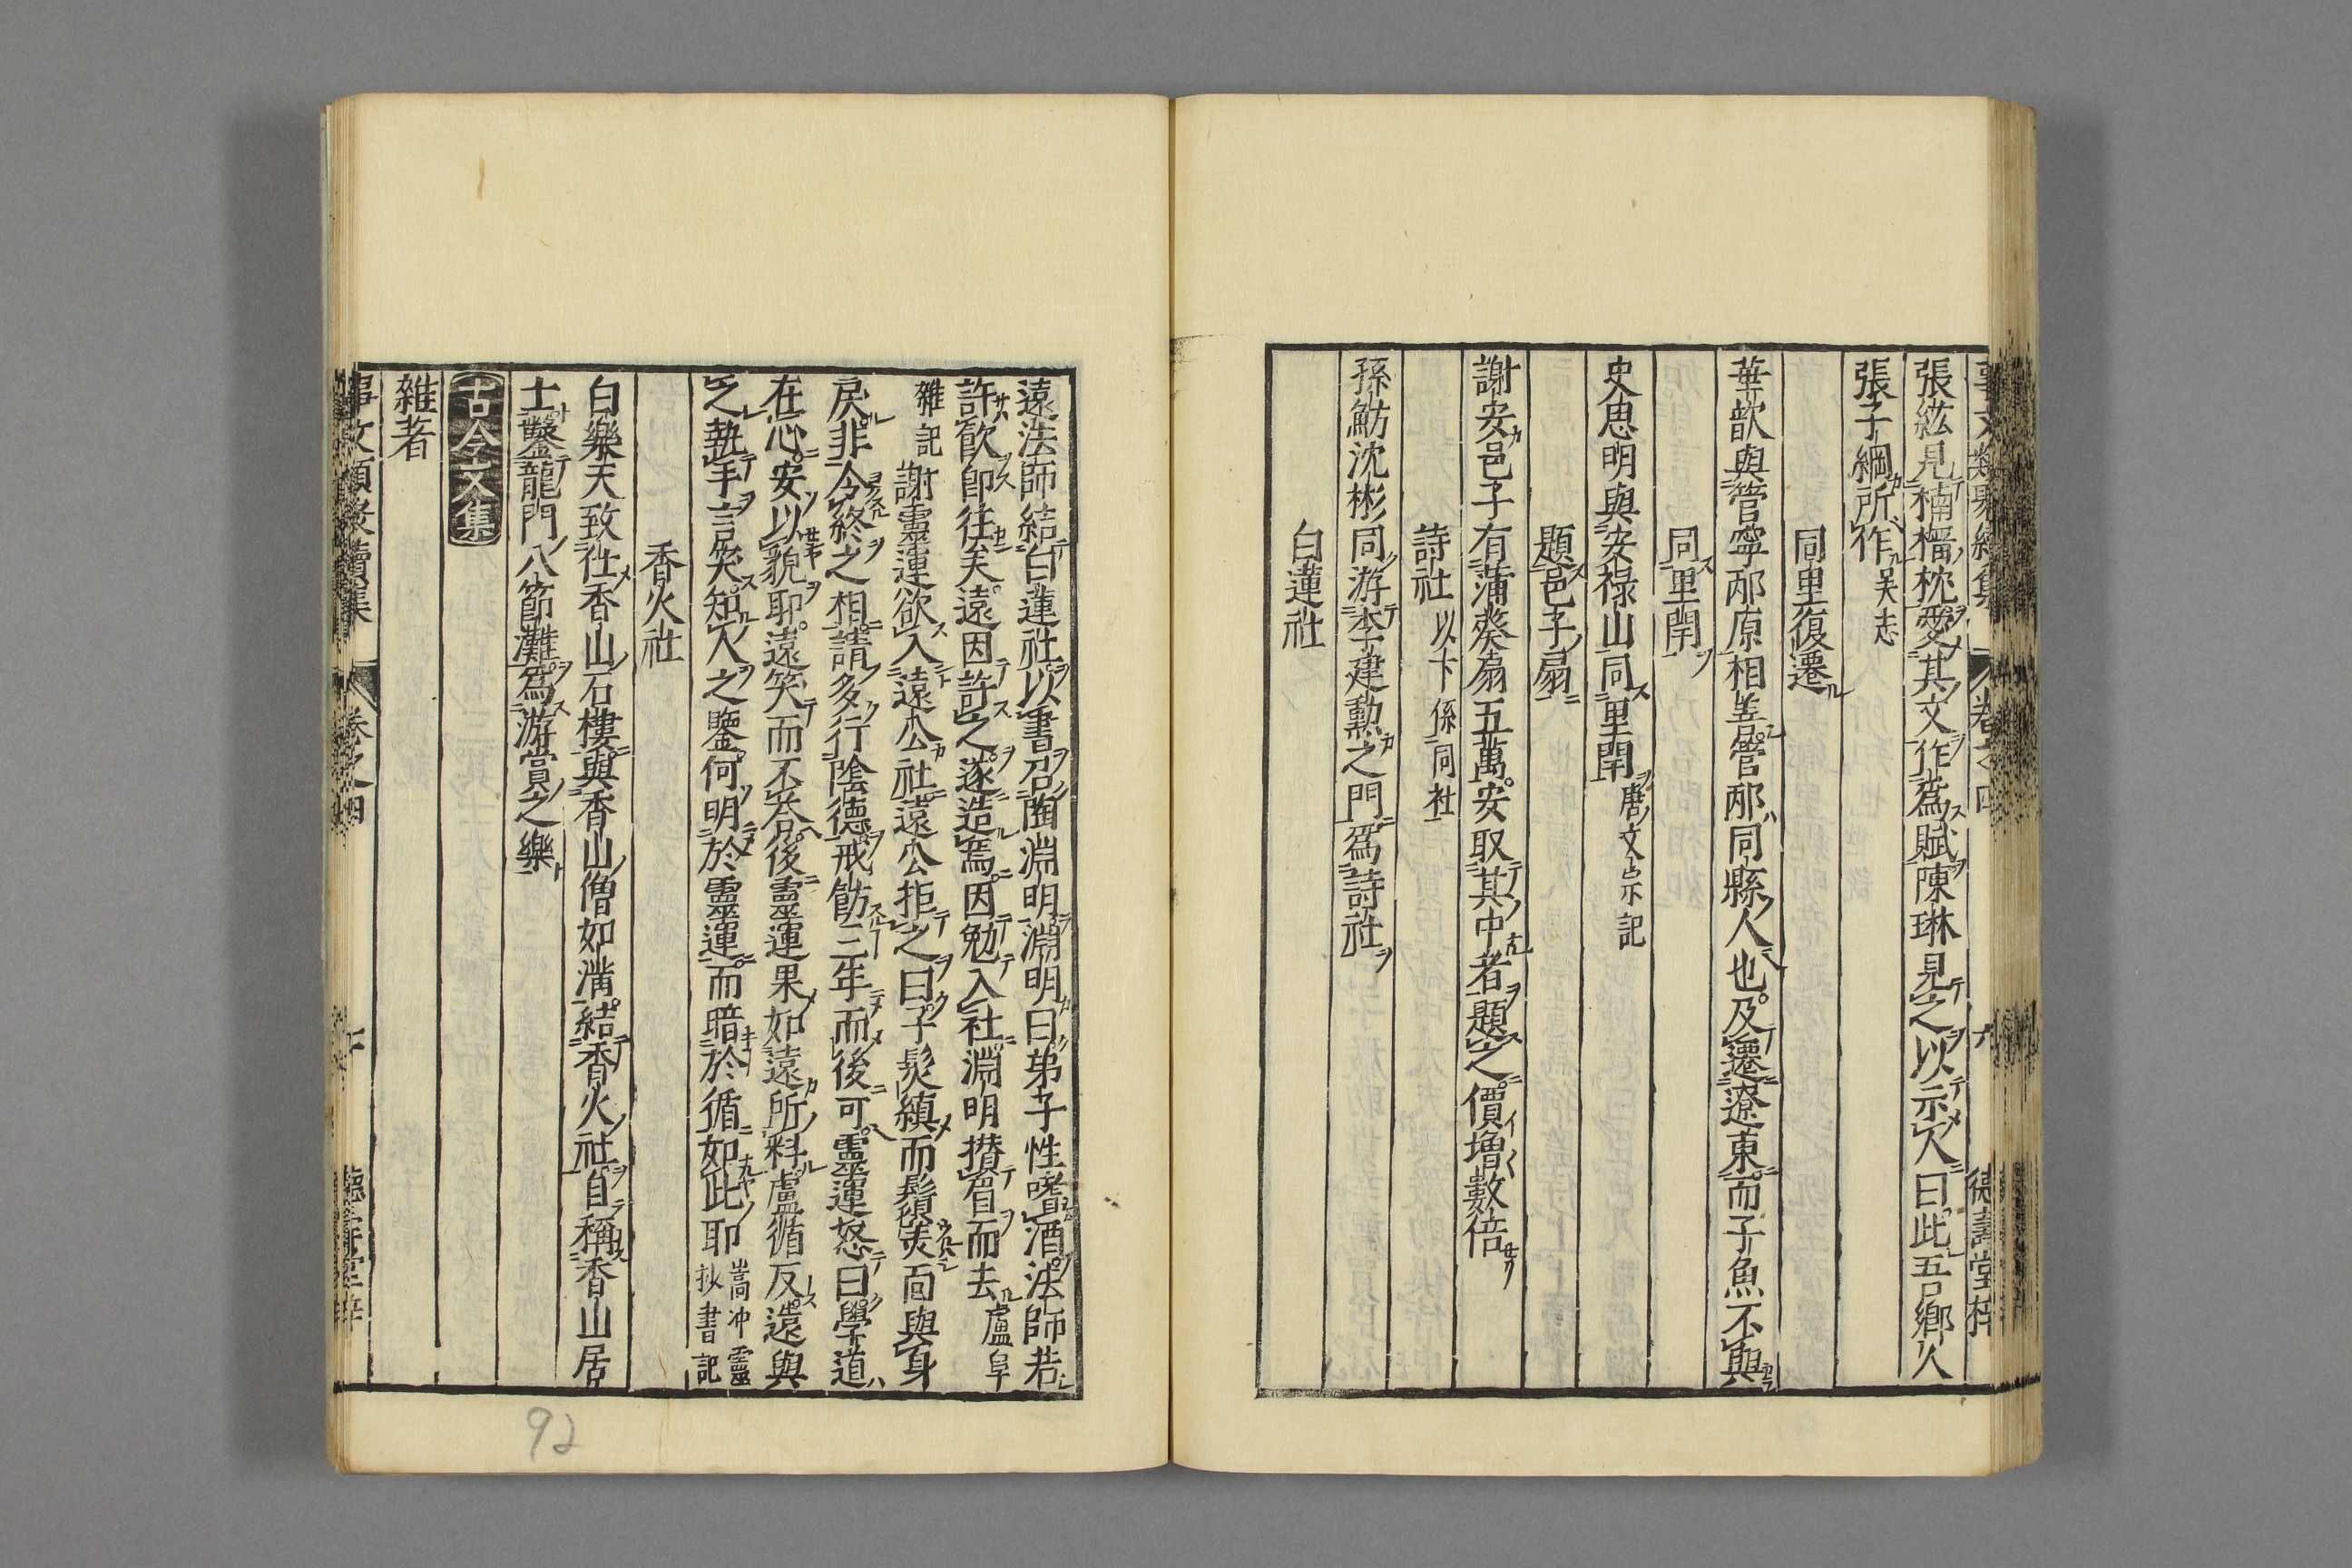 事文類聚續集 卷之四 九 德壽堂梓
張紘見楠榴枕愛其文作爲賦陳琳見之以示人曰此吾鄉人
張子綱所作吴志
同里復遷
華歆與管寧邴原相善管邴同縣人也及遷遼東而子魚不與
同里閈
史思明與安禄山同里閈唐文宗記
題邑子扇
謝安邑子有蒲葵扇五萬安取其中者題之價增數倍
詩社以下係同社
孫魴沈彬同游李建勲之門爲詩社
白蓮社
遠法師結白蓮社以書召陶淵明淵明曰弟子性嗜酒法師若
許飲即往矣遠因許之遂造焉因勉入社淵明攅眉而去廬阜
雜記謝靈運欲入遠公社遠公拒之曰子髭縝而鬚美面與身
戾非令終之相請多行陰德戒飭三年而後可靈運怒曰學道
在心安以貌耶遠笑而不荅後靈運果如遠所料盧循反遠與
之執手言笑知人之鑒何明於靈運而暗於循如此耶嵩冲靈
拟書記
香火社
白樂天致仕香山石樓與香山僧如滿結香火社自稱香山居
士鑿龍門八節灘爲游賞之樂
古今文集
雜著
事文類聚續集 卷之四 十 德壽堂梓
92